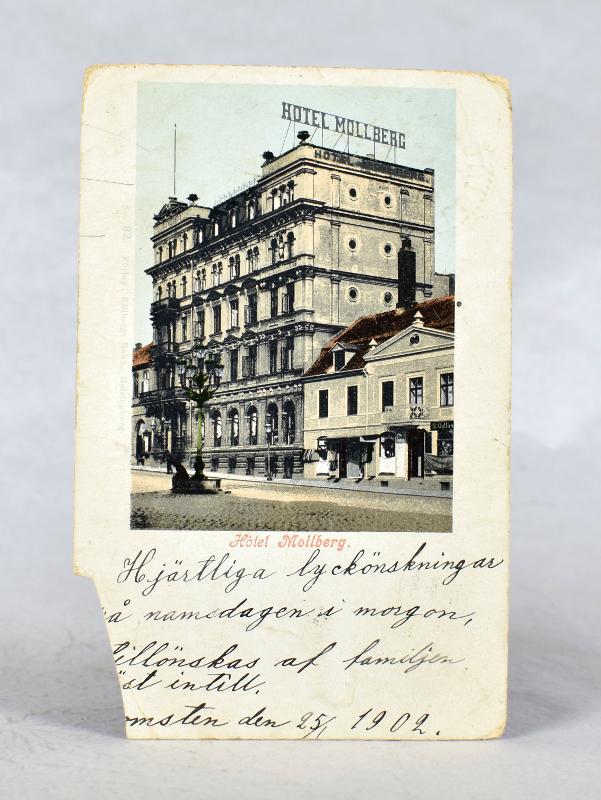 HOTEL MOLLBERG
HOTEL
Hôtel Mollberg.
Hjärtliga lyckönskningar
å namsdagen i morgon,
illönskas af familjen
st intill.
omsten den 25/1 1902.